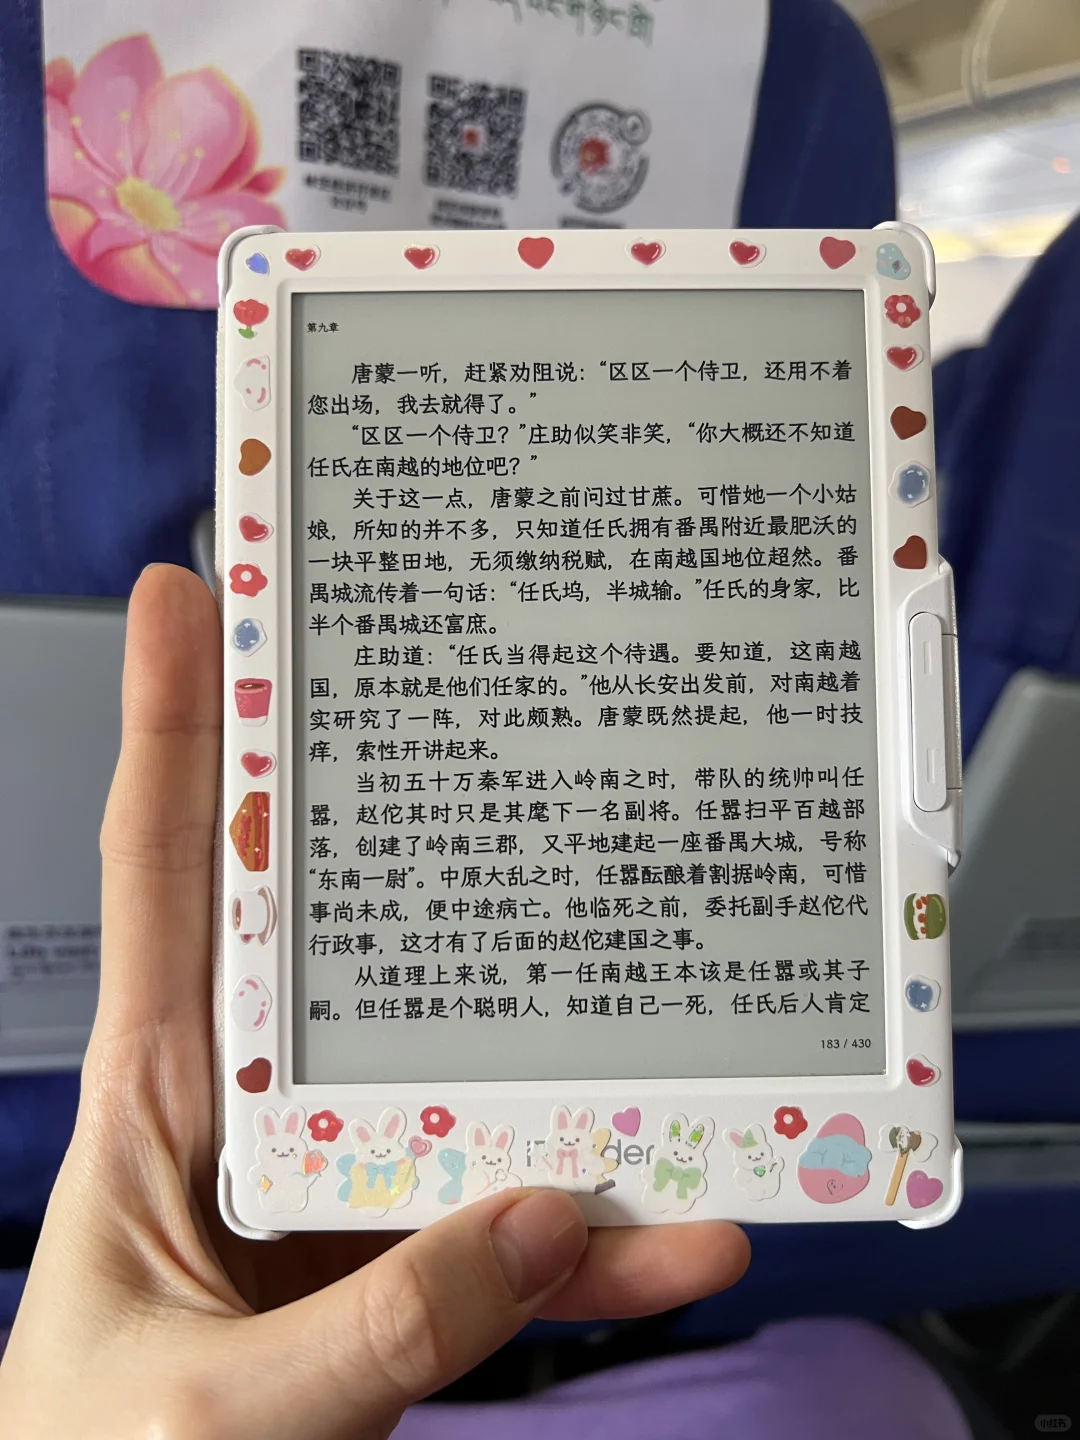 第九章
唐蒙一听，赶紧劝阻说：“区区一个侍卫，还用不着
您出场，我去就得了。”
“区区一个侍卫？”庄助似笑非笑，“你大概还不知道
任氏在南越的地位吧？”
关于这一点，唐蒙之前问过甘蔗。可惜她一个小姑
娘，所知的并不多，只知道任氏拥有番禺附近最肥沃的
一块平整田地，无须缴纳税赋，在南越国地位超然。番
禺城流传着一句话：“任氏坞，半城输。”任氏的身家，比
半个番禺城还富庶。
庄助道：“任氏当得起这个待遇。要知道，这南越
国，原本就是他们任家的。”他从长安出发前，对南越着
实研究了一阵，对此颇熟。唐蒙既然提起，他一时技
痒，索性开讲起来。
当初五十万秦军进入岭南之时，带队的统帅叫任
嚣，赵佗其时只是其麾下一名副将。任嚣扫平百越部
落，创建了岭南三郡，又平地建起一座番禺大城，号称
“东南一尉”。中原大乱之时，任嚣酝酿着割据岭南，可惜
事尚未成，便中途病亡。他临死之前，委托副手赵佗代
行政事，这才有了后面的赵佗建国之事。
从道理上来说，第一任南越王本该是任嚣或其子
嗣。但任嚣是个聪明人，知道自己一死，任氏后人肯定
183 / 430
小红书